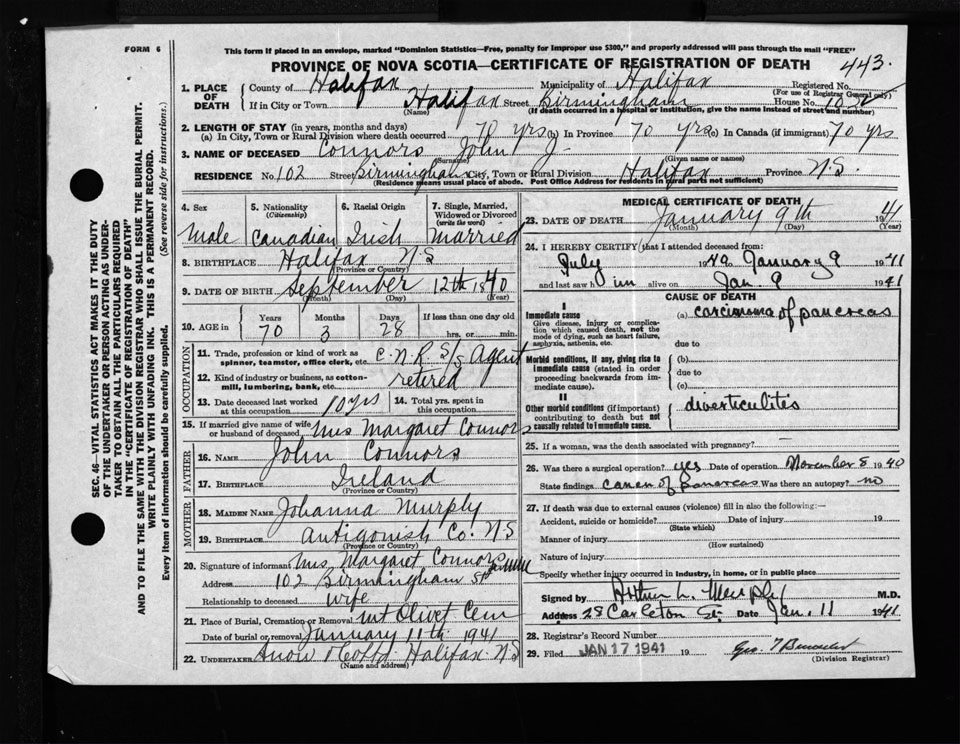 FORM 6
This form if placed in an envelope, marked "Dominion Statistics—Free, penalty for improper use $300," and properly addressed will pass through the mail "FREE"
PROVINCE OF NOVA SCOTIA—CERTIFICATE OF REGISTRATION OF DEATH
443.
1. PLACE OF DEATH
County of Halifax Municipality of Halifax Registered No.
(For use of Registrar General only)
If in City or Town Halifax Street Birmingham House No. 102
(Name) (If death occurred in a hospital or institution, give the name instead of street and number)
2. LENGTH OF STAY (in years, months and days)
(a) In City, Town or Rural Division where death occurred 70 yrs (b) In Province 70 yrs (c) In Canada (if immigrant) 70 yrs
3. NAME OF DECEASED Connors John J.
(Surname) (Given name or names)
RESIDENCE No. 102 Street Birmingham City, Town or Rural Division Halifax Province N.S.
(Residence means usual place of abode. Post Office Address for residents in rural parts not sufficient)
4. Sex 5. Nationality (Citizenship) 6. Racial Origin 7. Single, Married, Widowed or Divorced (write the word)
Male Canadian Irish Married
8. BIRTHPLACE Halifax N.S
(Province or Country)
9. DATE OF BIRTH September 12th 1840
(Month) (Day) (Year)
10. AGE in Years Months Days If less than one day old
70 3 28 hrs. or min.
OCCUPATION
11. Trade, profession or kind of work as spinner, teamster, office clerk, etc. C.N.R S/S Agent
12. Kind of industry or business, as cotton-mill, lumbering, bank, etc. retired
13. Date deceased last worked at this occupation 10 yrs 14. Total yrs. spent in this occupation
15. If married give name of wife or husband of deceased Mrs Margaret Connors
FATHER
16. NAME John Connors
17. BIRTHPLACE Ireland
(Province or Country)
MOTHER
18. MAIDEN NAME Johanna Murphy
19. BIRTHPLACE Antigonish Co. N.S
(Province or Country)
20. Signature of informant Mrs. Margaret Connors
Address 102 Birmingham St
Relationship to deceased wife
21. Place of Burial, Cremation or Removal Mt Olivet Cem
Date of burial or removal January 11th 1941
22. UNDERTAKER Snow & Co Ltd. Halifax N.S
(Name and address)
MEDICAL CERTIFICATE OF DEATH
23. DATE OF DEATH January 9th 1941
(Month) (Day) (Year)
24. I HEREBY CERTIFY that I attended deceased from:
July 1940 to January 9 1941
and last saw him alive on Jan. 9 1941
CAUSE OF DEATH
I
Immediate cause (a) carcinoma of pancreas
Give disease, injury or complication which caused death, not the mode of dying, such as heart failure, asphyxia, asthenia, etc.
due to
Morbid conditions, if any, giving rise to immediate cause (stated in order proceeding backwards from immediate cause).
(b)
due to
(c)
II
Other morbid conditions (if important) contributing to death but not causally related to immediate cause. diverticulitis
25. If a woman, was the death associated with pregnancy?
26. Was there a surgical operation? yes Date of operation November 8 1940
State findings cancer of pancreas Was there an autopsy? no
27. If death was due to external causes (violence) fill in also the following:—
Accident, suicide or homicide? Date of injury 19
(State which)
Manner of injury
(How sustained)
Nature of injury
Specify whether injury occurred in industry, in home, or in public place
Signed by Arthur L. Murphy M.D.
Address 28 Carleton St. Date Jan. 11 1941
28. Registrar's Record Number
29. Filed JAN 17 1941 19
(Division Registrar)
SEC. 46—VITAL STATISTICS ACT MAKES IT THE DUTY
OF THE UNDERTAKER OR PERSON ACTING AS UNDER-
TAKER TO OBTAIN ALL THE PARTICULARS REQUIRED
IN THE "CERTIFICATE OF REGISTRATION OF DEATH"
AND TO FILE THE SAME WITH THE DIVISION REGISTRAR WHO SHALL ISSUE THE BURIAL PERMIT.
WRITE PLAINLY WITH UNFADING INK. THIS IS A PERMANENT RECORD.
Every item of information should be carefully supplied. (See reverse side for instructions.)